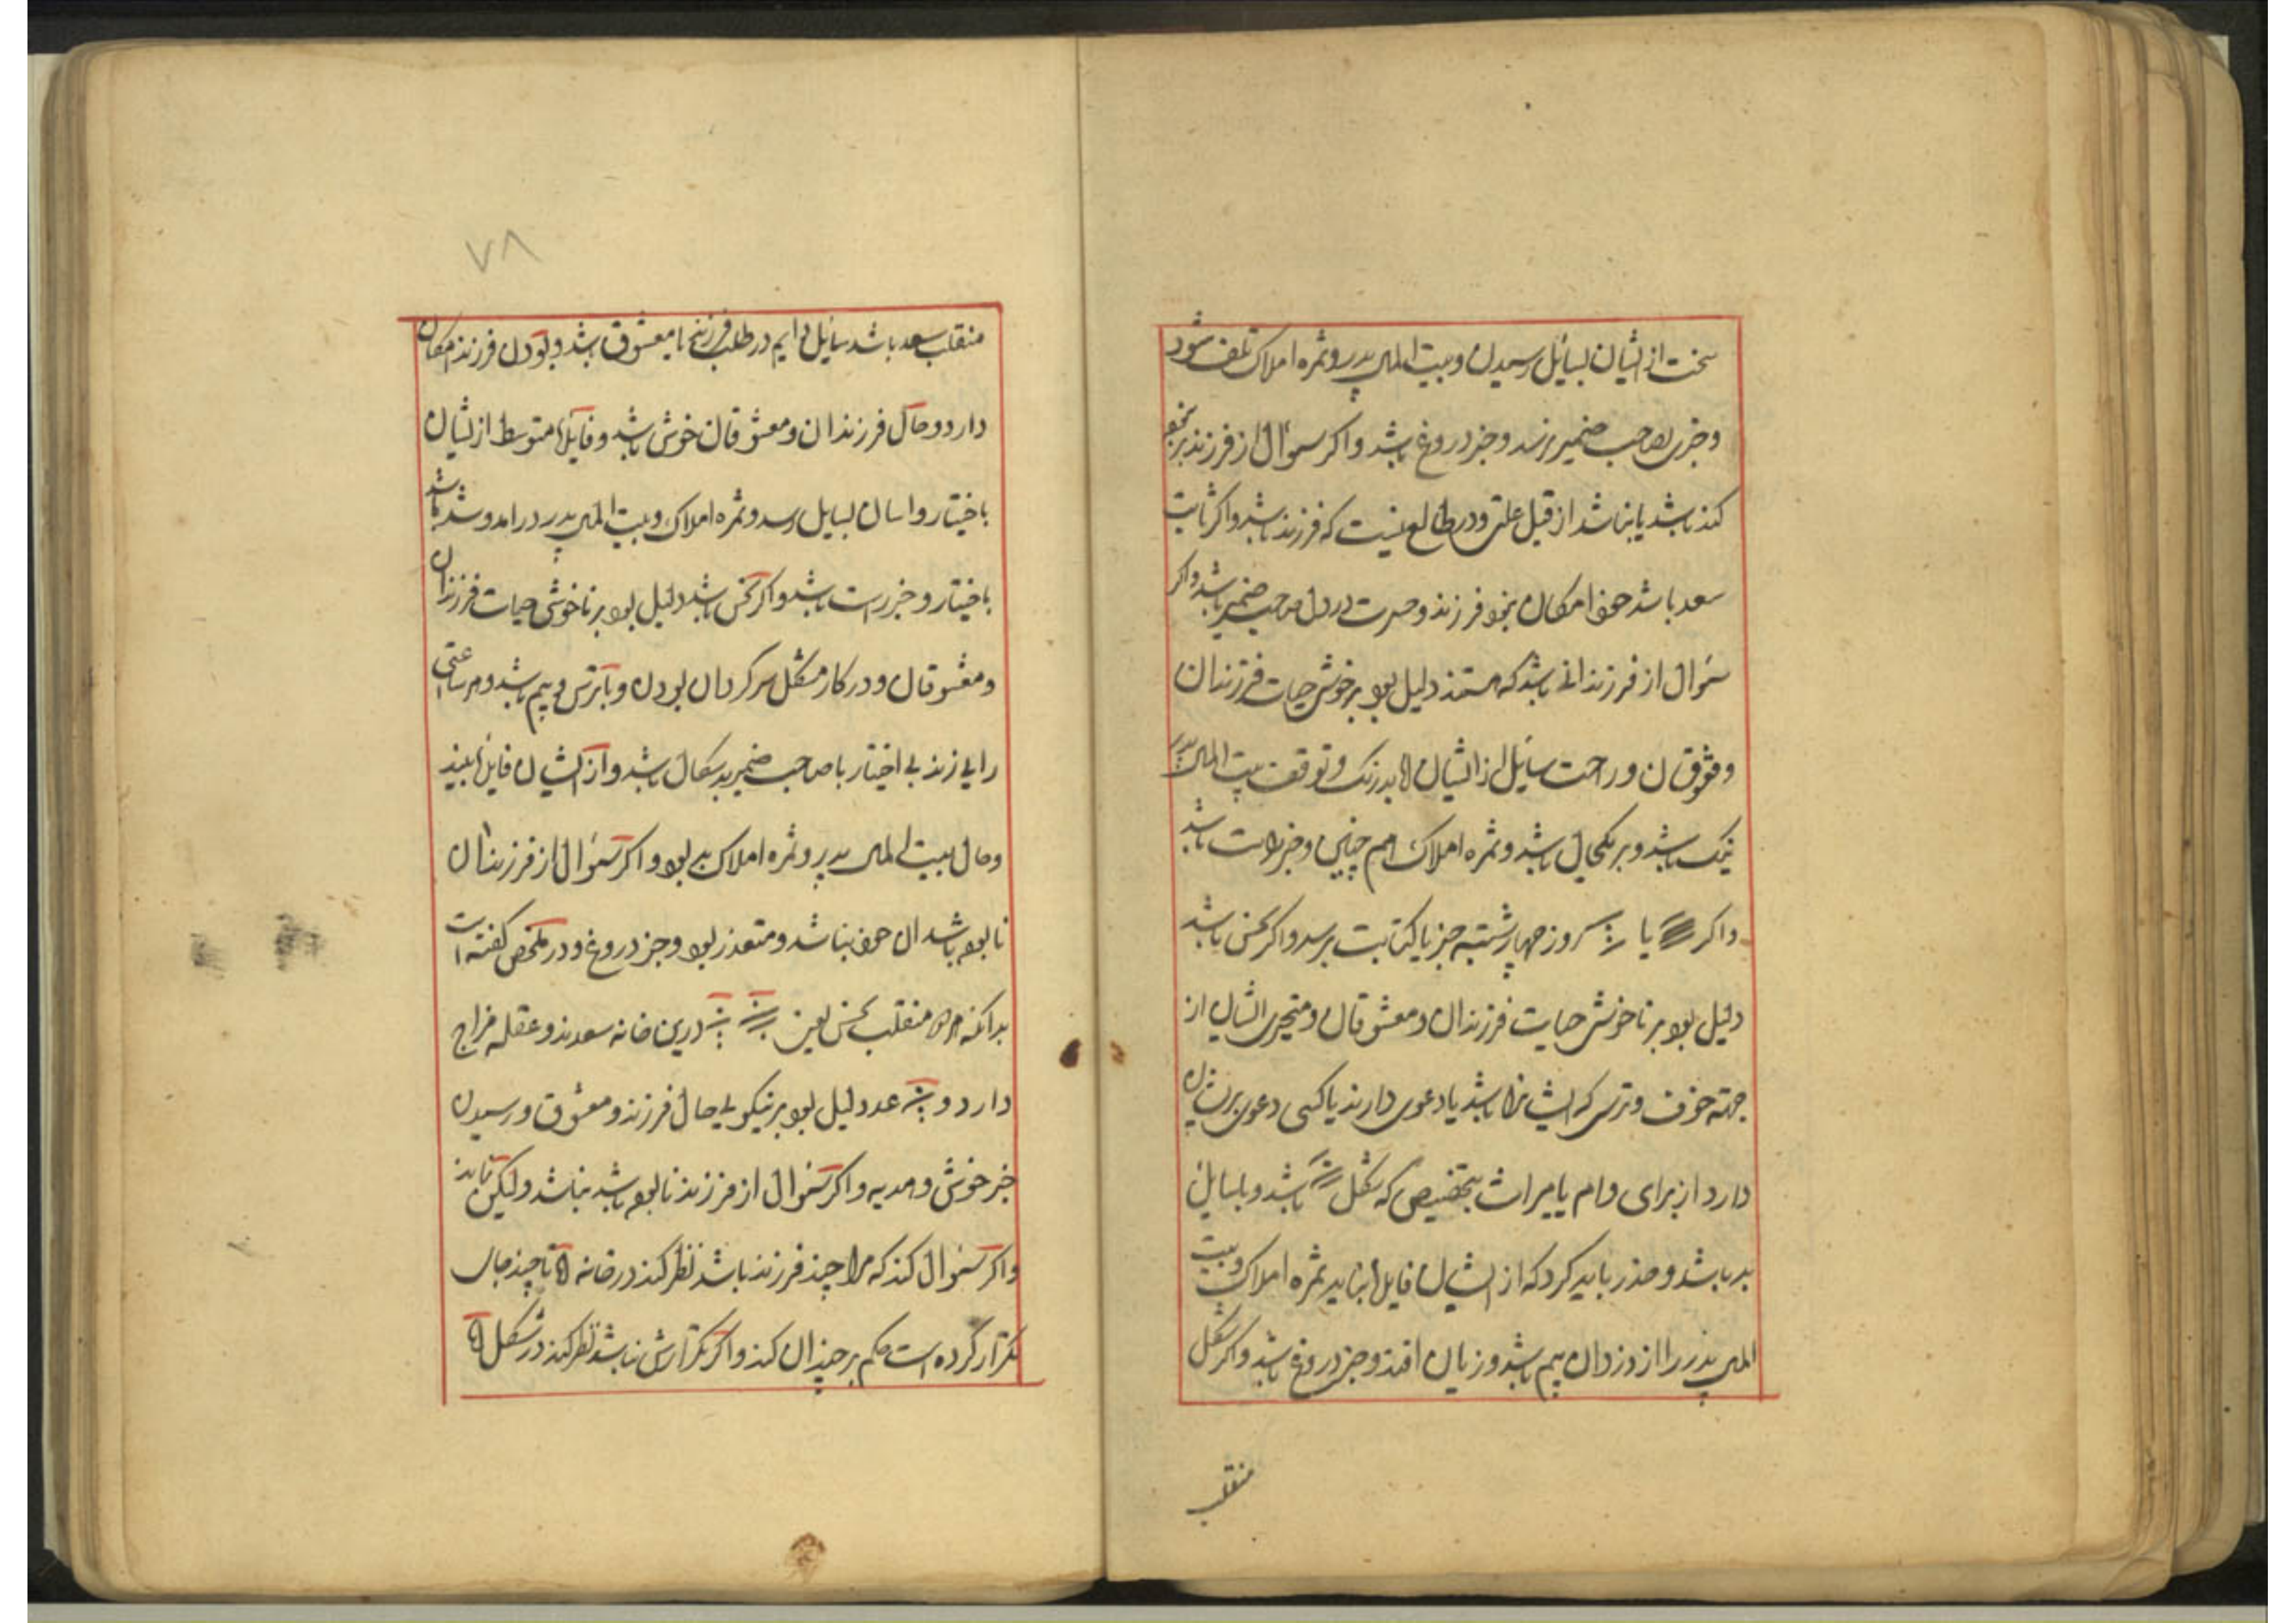 سخت از ایشان بسایل رسیدن و بیت المال پدر و ثمره املاک تلف شود
و خبری بصاحب ضمیر نرسد و خبر دروغ باشد و اکر سوال از فرزند بر نحو
کند باشد یا نباشد از قبل علتی و در طالع نیست که فرزند باشد واکر ثابت
سعد باشد امکان بخو فرزند و حسرت در دل صاحب ضمیر باشد و اکر
سوال از فرزندانی باشد که هستند دلیل بود بر خوشی حیات فرزندان
و معشوقان و راحت سایل از ایشان اما بدرنک و توقف بیت المال پدر
نیک باشد و بر یکحال باشد و ثمره املاک هم چنین و خبر راست باشد
واکر یا روز چهارشنبه خبر یا کتابت برسد و اکر نحس باشد
دلیل بود بر ناخوشی حیات فرزندان و معشوقان و متحیری ایشان از
جهته خوف و ترس که ایشانرا باشد یا دعوی دارند یا کسی دعوی برایشان
دارد از برای وام یا میراث بتخصیص که شکل باشد و با سایل
بد باشد و حذر باید کرد که از ایشان فایل نیابد ثمره املاک و بیت
المال پدر را از دزدان بیم باشد و زیان افتد و خبر دروغ باشد و اکر شکل
منقلب
۷۸
منقلب سعد باشد سایل دایم در طلب فرزند یا معشوق باشد و بودن فرزند امکان
دارد و حال فرزندان و معشوقان خوش باشد و فایل متوسط از ایشان
باختیار و اسان بسایل رسد و ثمره املاک و بیت المال پدر در امد و شد باشد
باختیار و خبر راست باشد و اکر نحس باشد دلیل بود بر ناخوشی حیات فرزندان
و معشوقان و در کار مشکل سرکردان بودن و با ترس و بیم باشد و هر ساعتی
رایی زند بی اختیار با صاحب ضمیر بد سکال باشد و از ایشان فایل نبیند
و مال بیت المال پدر و ثمره املاک بد بود و اکر سوال از فرزندان
نابوده باشد ان نباشد و متعذر بود و خبر دروغ و در ملخص کفته است
بدانکه هر منقلب نحس یعنی درین خانه سعدند و عقله مزاج
دارد و عدد دلیل بود بر نیکویی حال فرزند و معشوق و رسیدن
خبر خوش و هدیه و اکر سوال از فرزند نابوده باشد نباشد ولیکن
واکر سوال کند که مرا چند فرزند باشد نظر کند در خانه ۵ تا چند جای
تکرار کرده است حکم بر چندان کند و اکر تکرارش نباشد نظر کند در شکل ۵